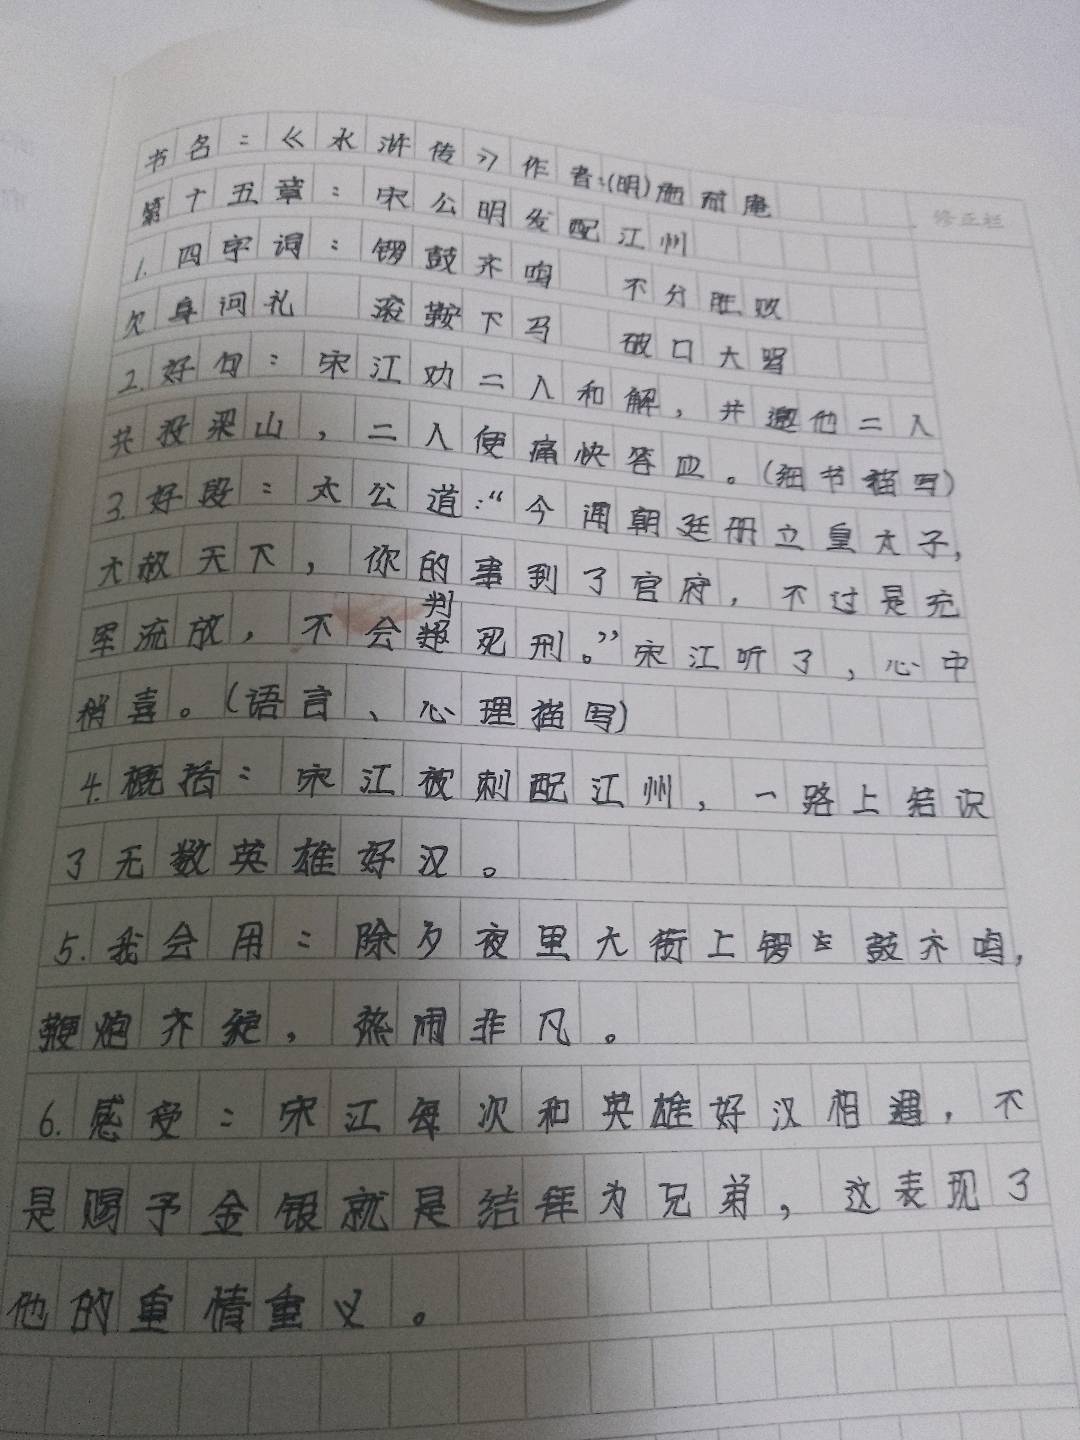 书名:《水浒传》作者:(明)施耐庵
修正栏
第十五章:宋公明发配江州
1.四字词:锣鼓齐鸣 不分胜败
欠身问礼 滚鞍下马 破口大骂
2.好句:宋江劝二人和解,并邀他二人
共投梁山,二人便痛快答应。(细节描写)
3.好段:太公道:“今闻朝廷册立皇太子,
大赦天下,你的事到了官府,不过是充
军流放,不会判死刑。”宋江听了,心中
稍喜。(语言、心理描写)
4.概括:宋江被刺配江州,一路上结识
了无数英雄好汉。
5.我会用:除夕夜里大街上锣鼓齐鸣,
鞭炮齐绽,热闹非凡。
6.感受:宋江每次和英雄好汉相遇,不
是赐予金银就是结拜为兄弟,这表现了
他的重情重义。